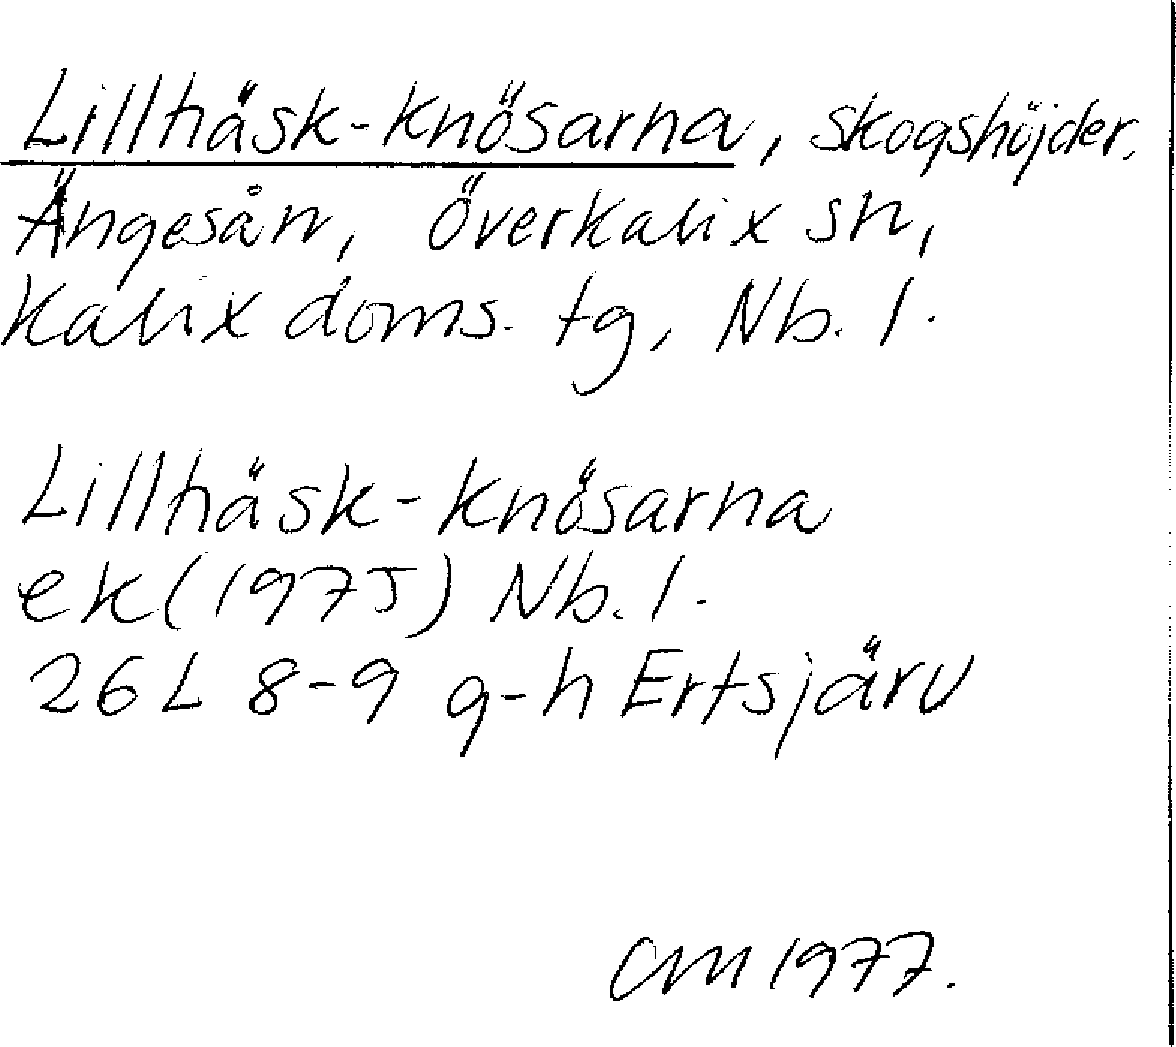 Lillhäsk-Knösarna, skogshöjder,
Ängesån, Överkalix sn,
Kalix doms. tg, Nb. l.
Lillhäsk-Knösarna
ek(1975) Nb. l.
26 L 8-9 g-h Ertsjärv
CM 1977.